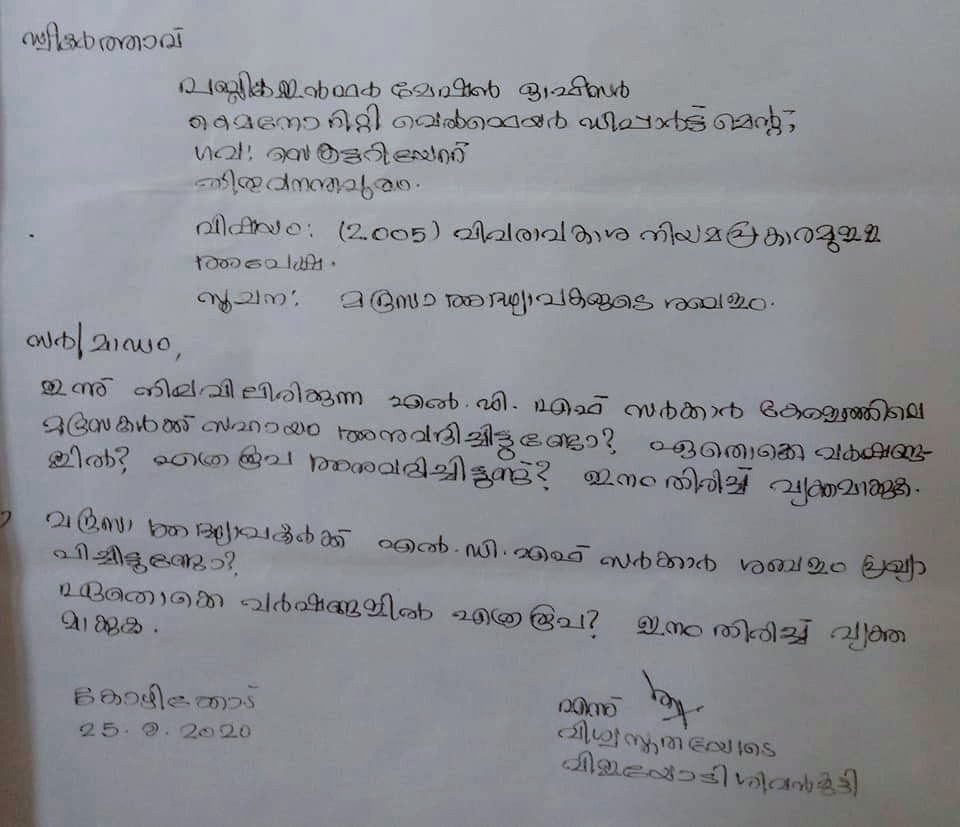 സ്വീകർത്താവ്
പബ്ലിക് ഇൻഫർ മേഷൻ ഓഫീസർ
മൈനോറിറ്റി വെൽഫെയർ ഡിപ്പാർട്ട്മെന്റ്,
ഗവ: സെക്രട്ടറിയേറ്റ്
തിരുവനന്തപുരം.
വിഷയം: (2005) വിവരാവകാശ നിയമപ്രകാരമുള്ള
അപേക്ഷ.
സൂചന: മദ്രസാ അദ്ധ്യാപകരുടെ ശമ്പളം.
സർ/മാഡം,
ഇന്ന് നിലവിലിരിക്കുന്ന എൽ.ഡി.എഫ് സർക്കാർ കേരളത്തിലെ
മദ്രസകൾക്ക് സഹായം അനുവദിച്ചിട്ടുണ്ടോ? ഏതൊക്കെ വകുപ്പുങ്ങ-
ളിൽ? എത്ര രൂപ അനുവദിച്ചിട്ടുണ്ട്? ഇനം തിരിച്ച് വ്യക്തമാക്കുക.
മദ്രസാ അദ്ധ്യാപകർക്ക് എൽ.ഡി.എഫ് സർക്കാർ ശമ്പളം പ്രഖ്യാ
പിച്ചിട്ടുണ്ടോ?
ഏതൊക്കെ വർഷങ്ങളിൽ എത്ര രൂപ? ഇനം തിരിച്ച് വ്യക്ത
മാക്കുക.
കോഴിക്കോട്
25.9.2020
എന്ന്
വിശ്വസ്തതയോടെ